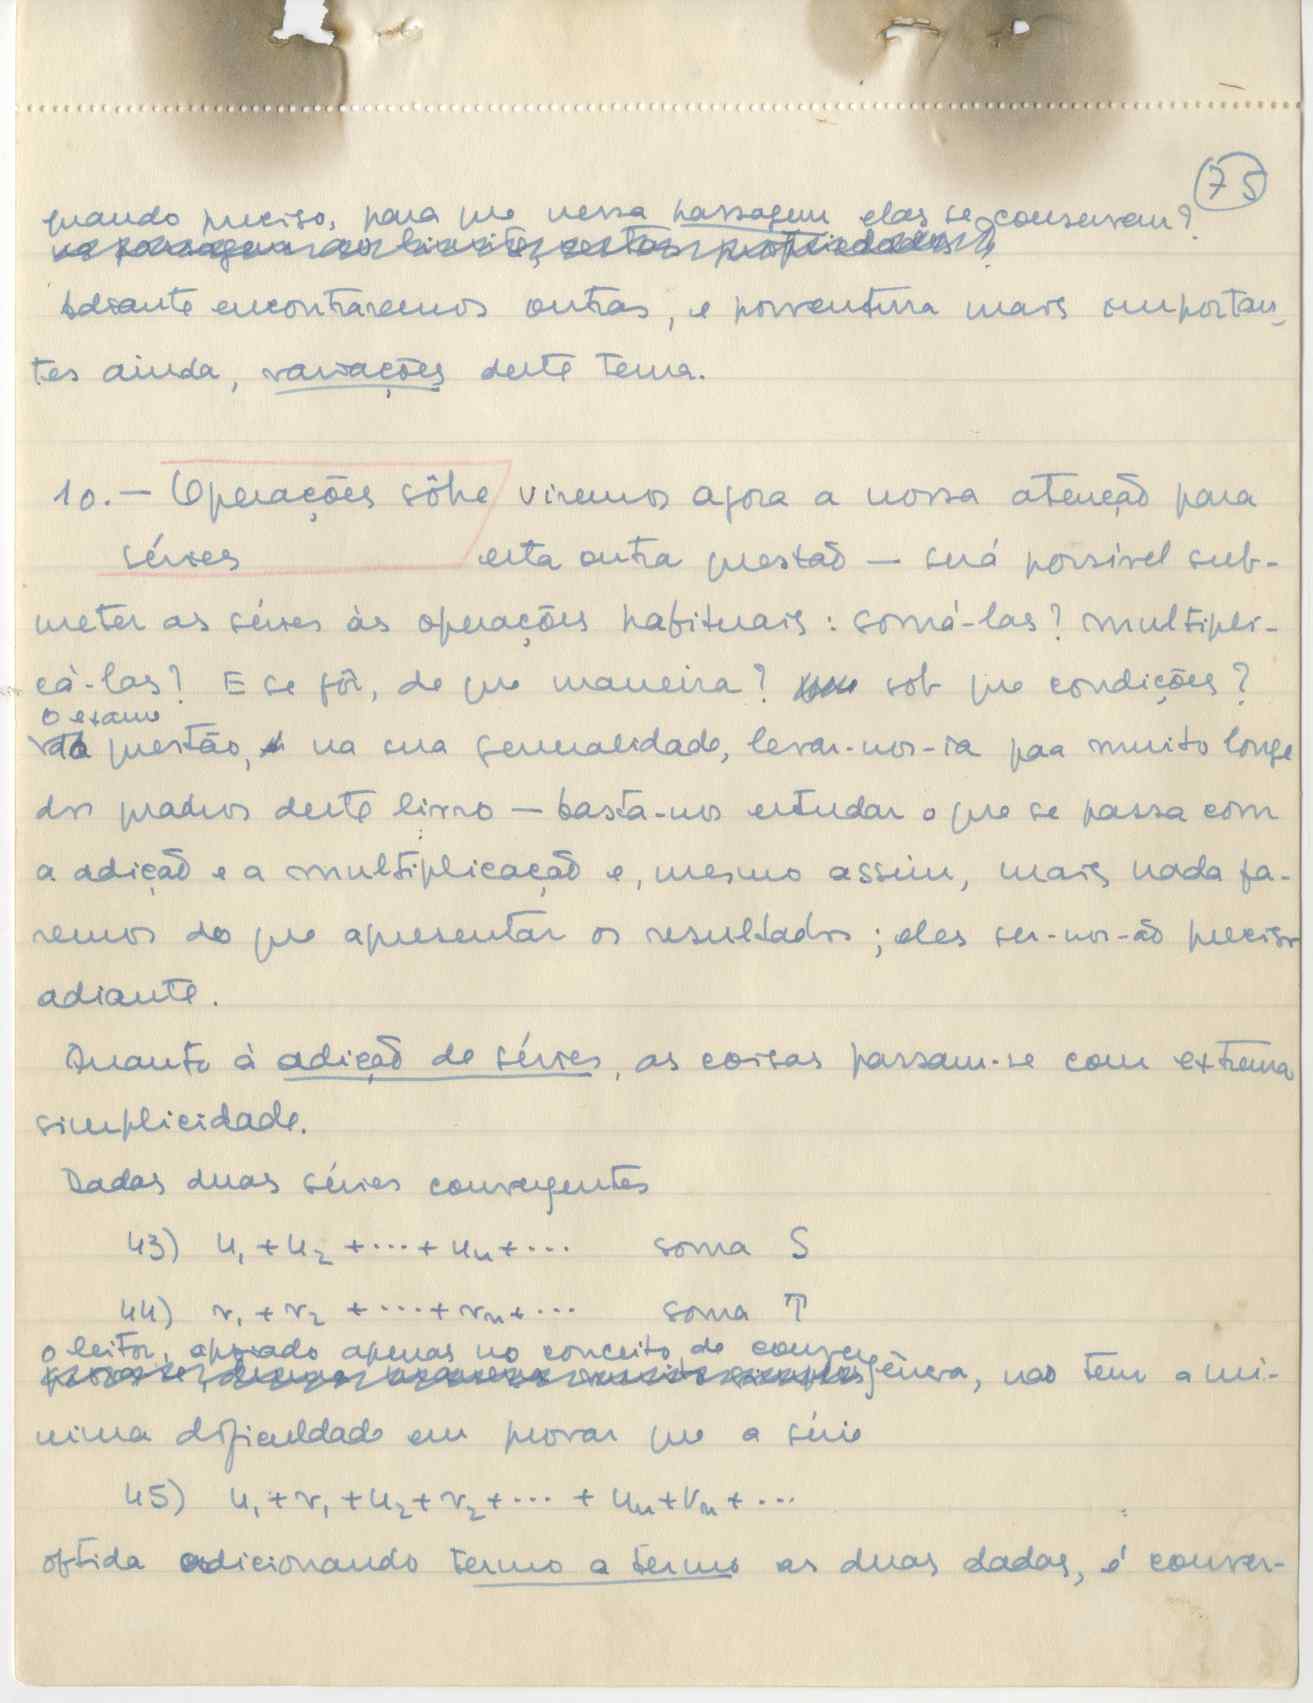 75
quando preciso, para que nessa passagem elas se conservam?
na passagem ao limite, certas propriedades?
Adiante encontraremos outras, e porventura mais importan-
tes ainda, variações deste tema.
10. — Operações sôbre viremos agora a nossa atenção para
séries esta outra questão — será possível sub-
meter as séries às operações habituais: somá-las? multipli-
cá-las? E se fôr, de que maneira? sob que condições?
o exame
da questão, na sua generalidade, levar-nos-ia para muito longe
dos quadros deste livro — basta-nos estudar o que se passa com
a adição e a multiplicação e, mesmo assim, mais nada fa-
remos do que apresentar os resultados; eles ser-nos-ão precisos
adiante.
Quanto à adição de séries, as coisas passam-se com extrema
simplicidade.
Dadas duas séries convergentes
43) u₁ + u₂ + ··· + uₙ + ··· soma S
44) v₁ + v₂ + ··· + vₙ + ··· soma T
o leitor, apoiado apenas no conceito de conver
gência, não tem a mí-
nima dificuldade em provar que a série
45) u₁ + v₁ + u₂ + v₂ + ··· + uₙ + vₙ + ···
obtida adicionando termo a termo as duas dadas, é conver-